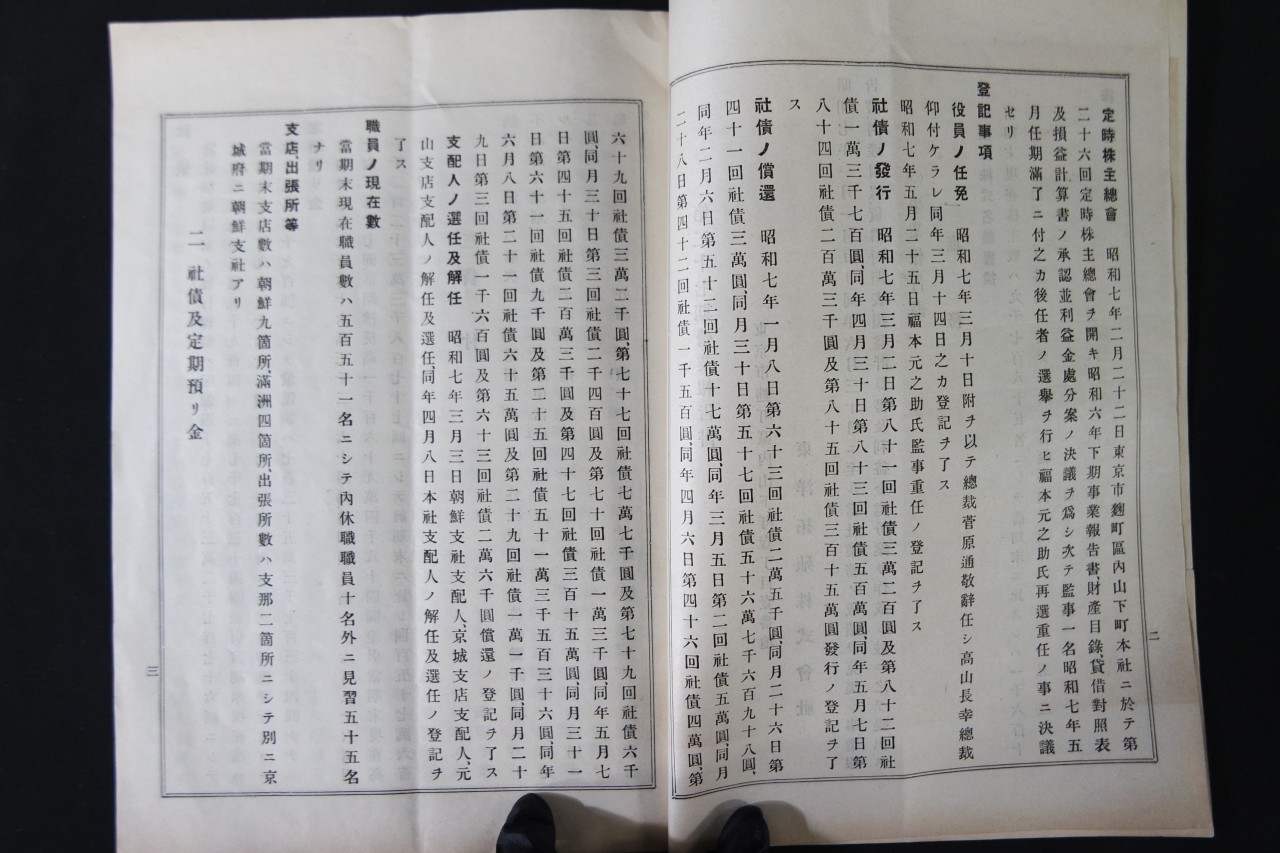 定時株主總會　昭和七年二月二十二日東京市麴町區內山下町本社ニ於テ第
二十六回定時株主總會ヲ開キ昭和六年下期事業報告書、財產目錄、貸借對照表
及損益計算書ノ承認並利益金處分案ノ決議ヲ爲シ次テ監事一名昭和七年五
月任期滿了ニ付之カ後任者ノ選擧ヲ行ヒ福本元之助氏再選重任ノ事ニ決議
セリ
登記事項
役員ノ任免　昭和七年三月十日附ヲ以テ總裁菅原通敬辭任シ高山長幸總裁
仰付ケラレ同年三月十四日之カ登記ヲ了ス
昭和七年五月二十五日福本元之助氏監事重任ノ登記ヲ了ス
社債ノ發行　昭和七年三月二日第八十一回社債三萬二百圓及第八十二回社
債一萬三千七百圓、同年四月三十日第八十三回社債五百萬圓、同年五月七日第
八十四回社債二百萬三千圓及第八十五回社債三百十五萬圓發行ノ登記ヲ了
ス
社債ノ償還　昭和七年一月八日第六十三回社債二萬五千圓、同月二十六日第
四十一回社債三萬圓、同月三十日第五十七回社債五十六萬七千六百九十八圓、
同年二月六日第五十二回社債十七萬圓、同年三月五日第二回社債五萬圓、同月
二十八日第四十二回社債一千五百圓、同年四月六日第四十六回社債四萬圓、第
二
六十九回社債三萬二千圓、第七十七回社債七萬七千圓及第七十九回社債六千
圓、同月三十日第三回社債二千四百圓及第七十回社債一萬三千圓、同年五月七
日第四十五回社債二百萬三千圓及第四十七回社債三百十五萬圓、同月三十一
日第六十一回社債九千圓及第二十五回社債五十一萬三千五百三十六圓、同年
六月八日第二十一回社債六十五萬圓及第二十九回社債一萬一千圓、同月二十
九日第三回社債一千六百圓及第六十三回社債二萬六千圓償還ノ登記ヲ了ス
支配人ノ選任及解任　昭和七年三月三日朝鮮支社支配人、京城支店支配人、元
山支店支配人ノ解任及選任、同年四月八日本社支配人ノ解任及選任ノ登記ヲ
了ス
職員ノ現在數
當期末現在職員數ハ五百五十一名ニシテ內休職職員十名外ニ見習五十五名
ナリ
支店、出張所等
當期末支店數ハ朝鮮九箇所、滿洲四箇所、出張所數ハ支那二箇所ニシテ別ニ京
城府ニ朝鮮支社アリ
二　社債及定期預リ金
三